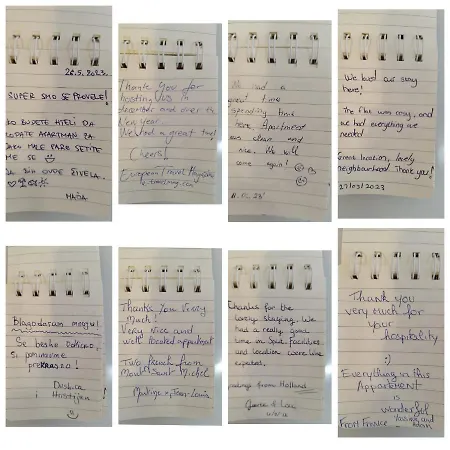 26.5.2023.
SUPER SMO SE PROVELE!
BUDETE HTELI DA
APARTMAN ZA
MALE PARE SETITE
ME SE
BIH OVDE ŽIVELA..
MAJA
Thank you for
hosting us in
december and over the
New year.
We had a great time!
Cheers!
European Travel Magazine
We had a
great time
spending time
here. Apartment
was clean and
nice. We will
come again!
We loved our stay
here!
The flat was cosy, and
we had everything we
needed!
Great location, lovely
neighbourhood. Thank you!
27/03/2023
Blagodaram mnogu!
Se beshe odlicno,
Si pominavme
prekrasno!
Dushica
i Hristijan
Thanks you very
much!
Very nice and
well located appartment
Two French from
Mont Saint Michel
Thanks for the
lovely staying. We
had a really good
time in Spit. Facilities
and location were fine
expected.
from Holland
Thank you
very much for
your hospitality
:)
Everything in this
Appartement
is
wonderful
From France